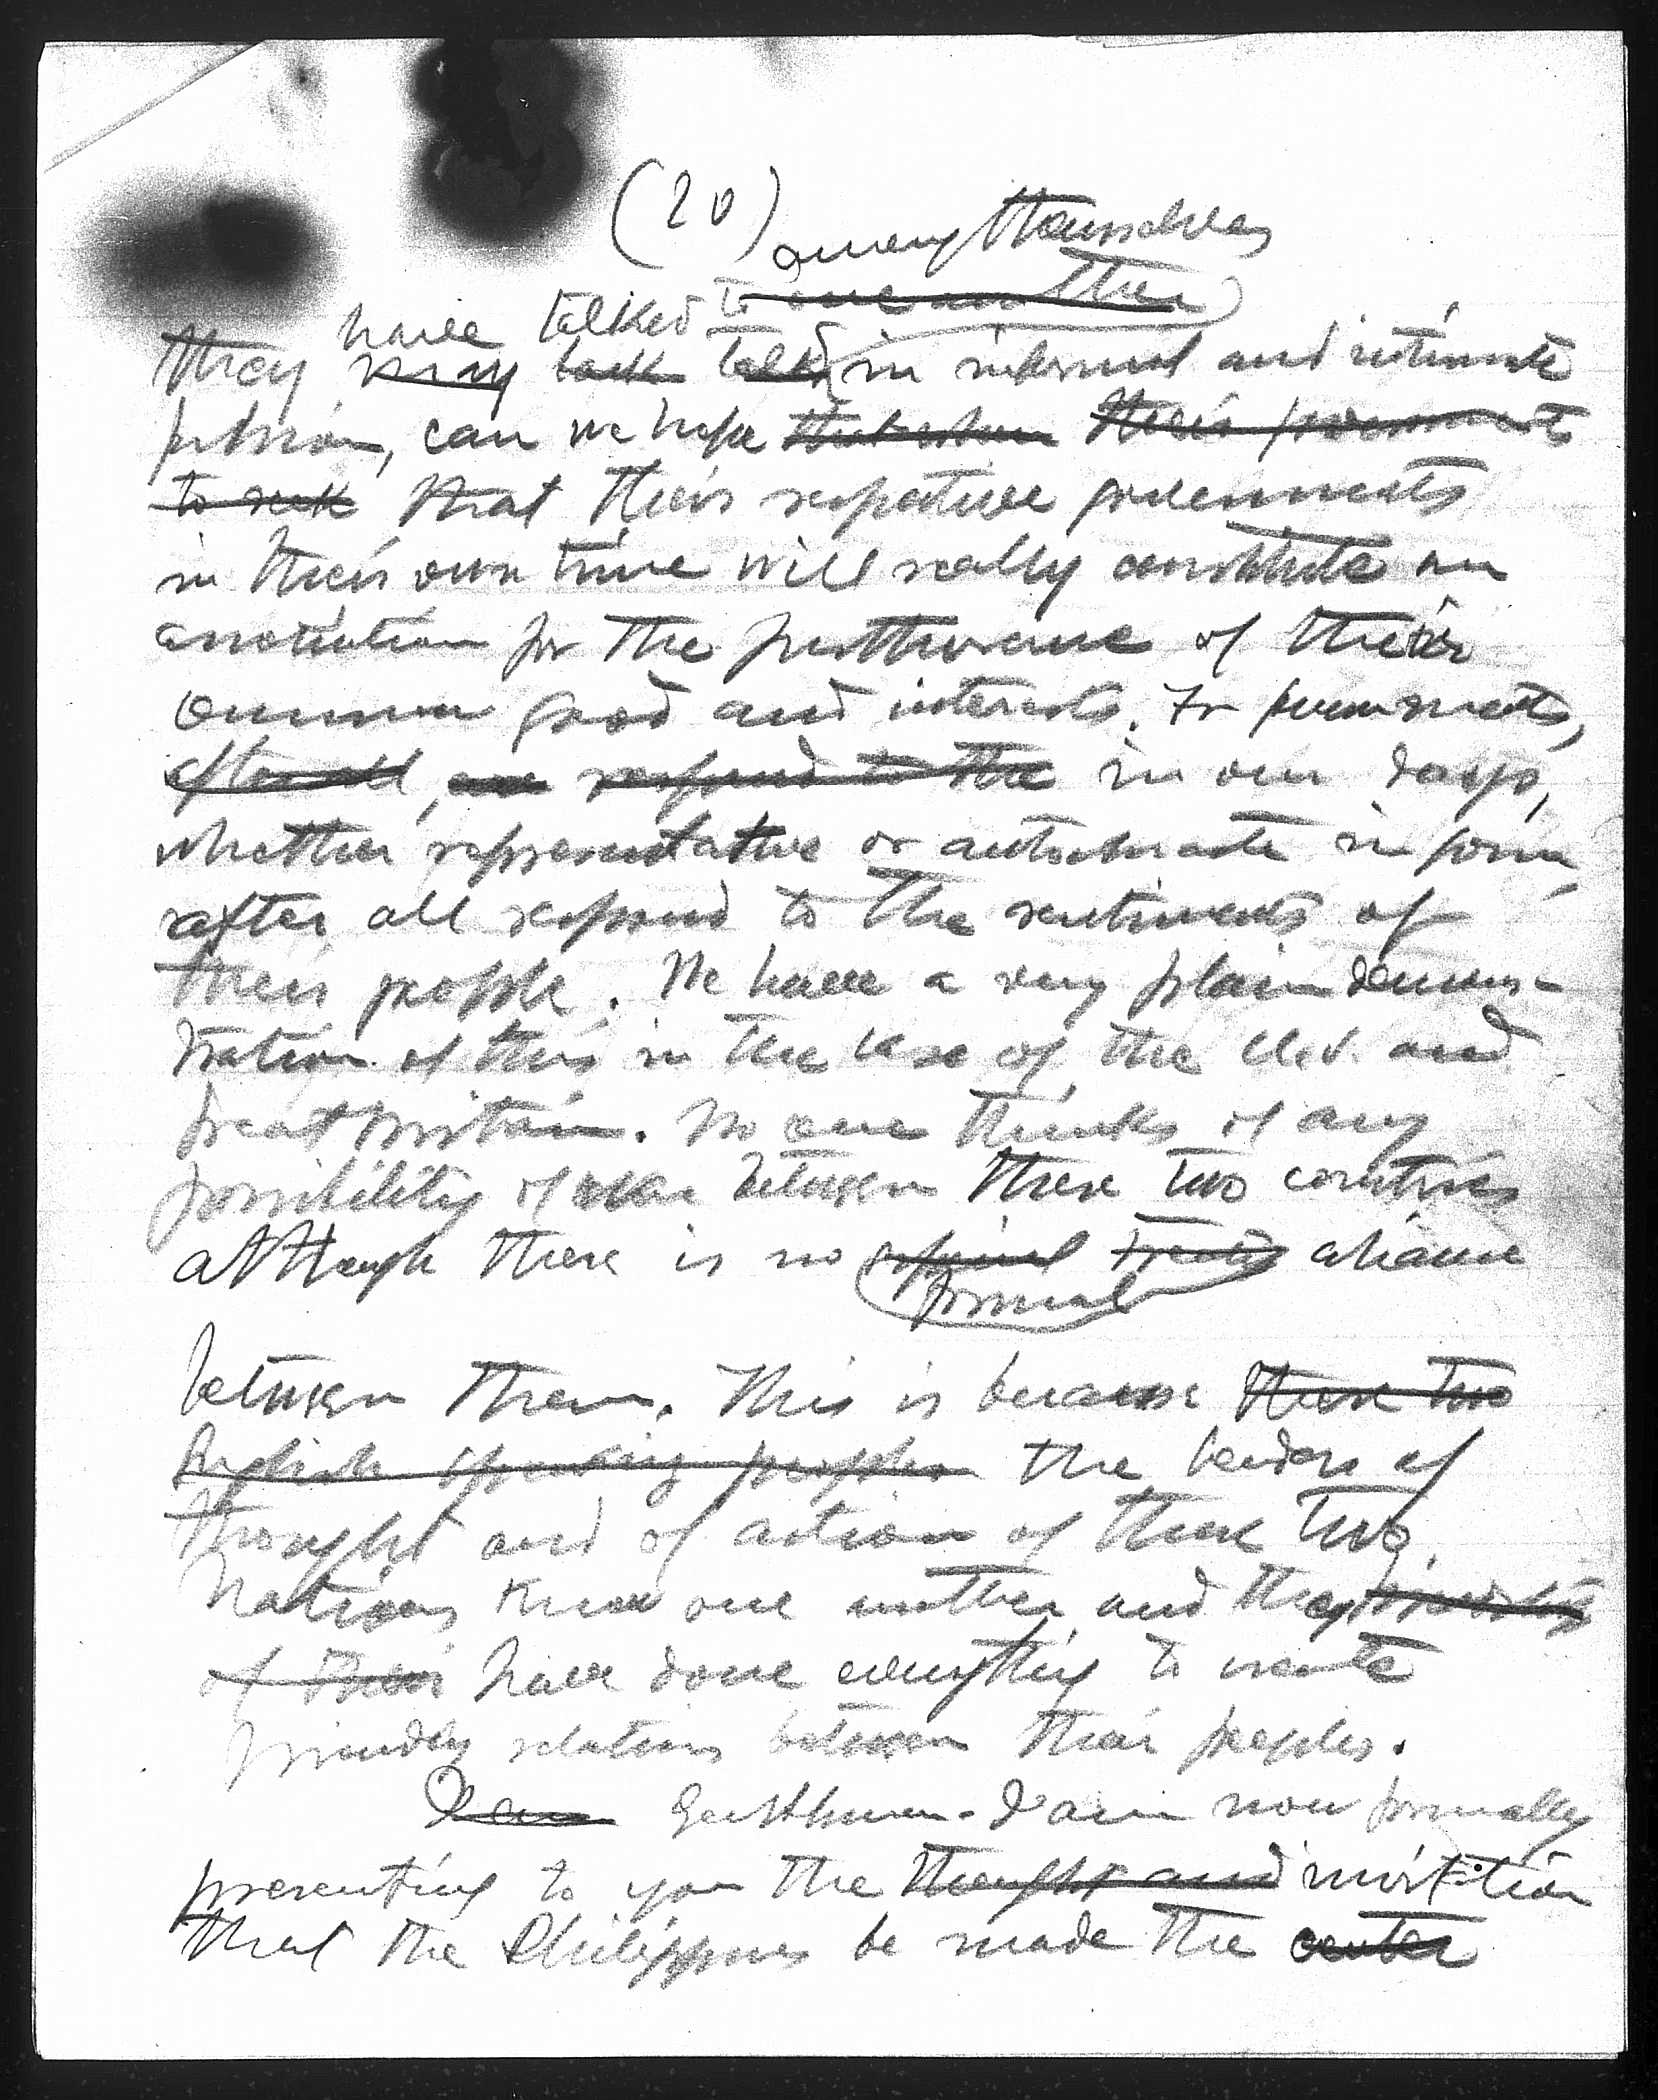 (20)
among themselves
have talked to one another
They may talk talk in informal and intimate
fashion, can we hope that when their governments
to seek that their respective governments
in their own time will really constitute an
association for the furtherance of their
common good and interests. For governments,
after all, are respond to the in our days,
whether representative or autocratic in form,
after all respond to the sentiments of
their people. We have a very plain demons-
tration of this in the case of the U.S. and
Great Britain. No one thinks of any
possibility of war between these two countries
although there is no official treaty aliance
formal
between them. This is because these two
English speaking peoples the leaders of
thought and of action of these two
nations know one another and they
of their have done everything to create
friendly relations between their peoples.
Gentlemen - I am now formally
presenting to you the thought and invitation
that the Philippines be made the center